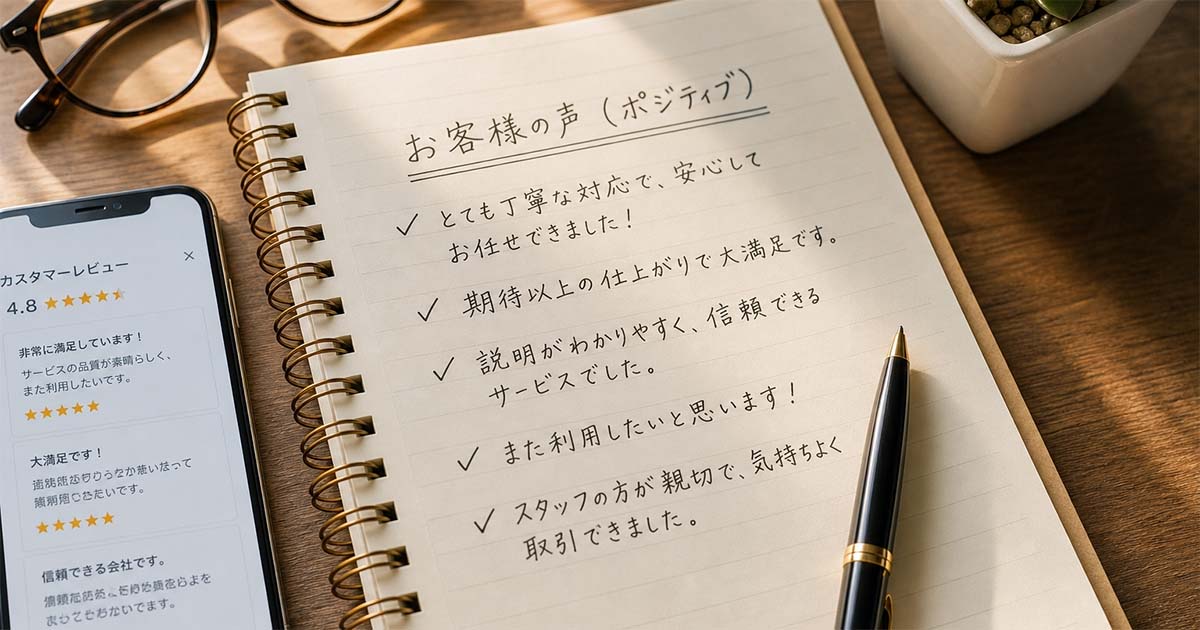 お客様の声（ポジティブ）
✓ とても丁寧な対応で、安心して
お任せできました！
✓ 期待以上の仕上がりで大満足です。
✓ 説明がわかりやすく、信頼できる
サービスでした。
✓ また利用したいと思います！
✓ スタッフの方が親切で、気持ちよく
取引できました。
カスタマーレビュー
4.8 ★★★★★
非常に満足しています！
サービスの品質が素晴らしく、
また利用したいです。
★★★★★
大満足です！
★★★★★
信頼できる会社です。